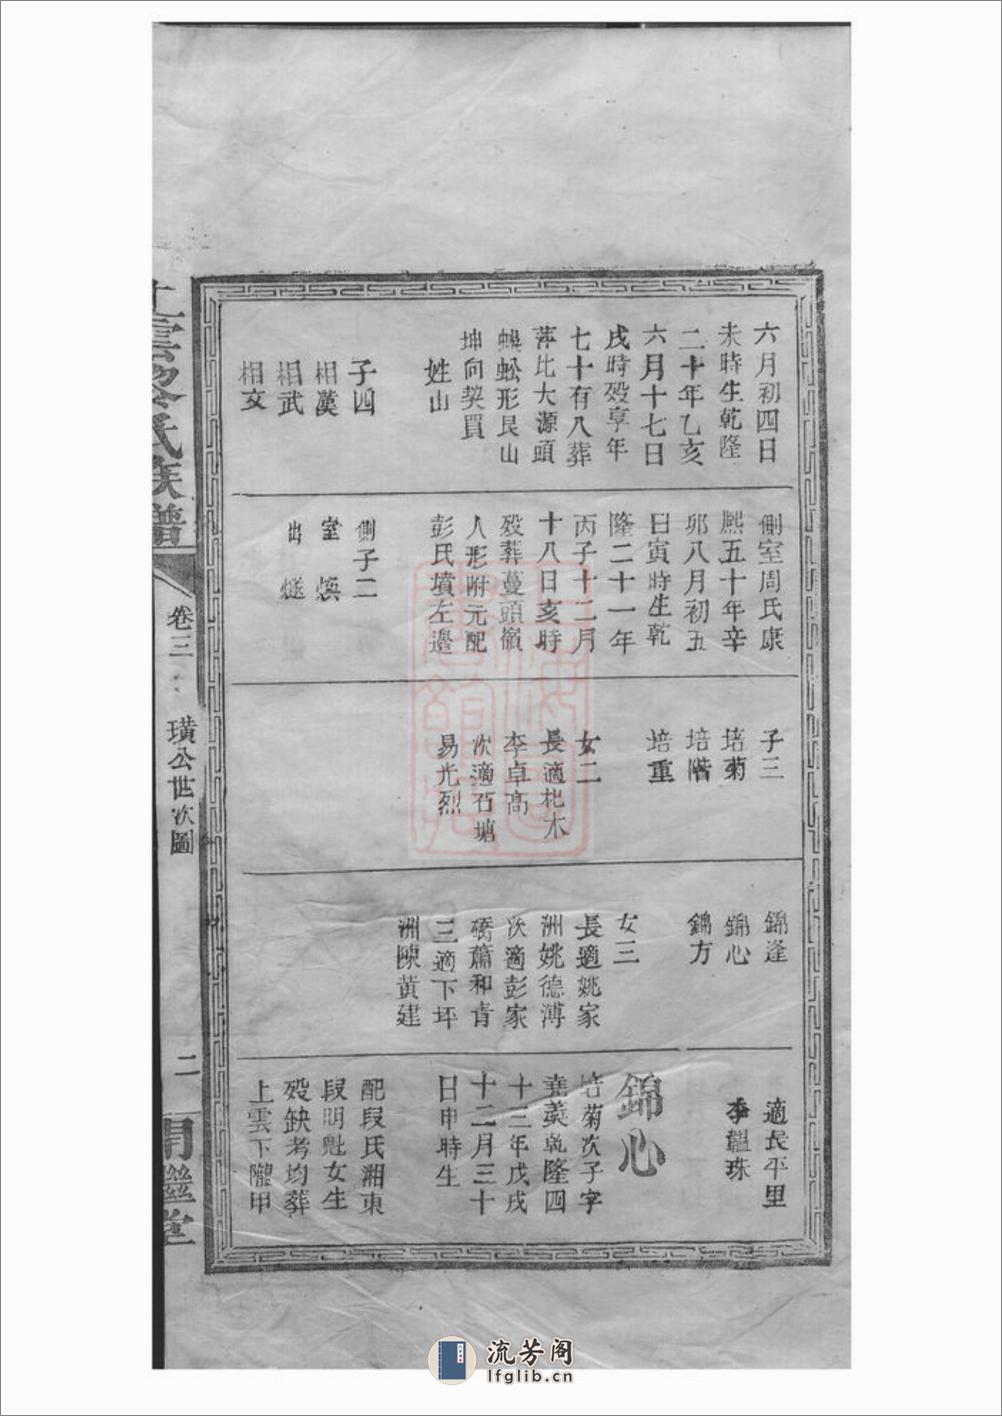 六月初四日
未時生乾隆
二十年乙亥
六月十七日
戌時殁享年
七十有八葬
萍比大源頭
蜈蚣形艮山
坤向契買
姓山
子四
相漢
相武
相文
側室周氏康
熙五十年辛
卯八月初五
日寅時生乾
隆二十一年
丙子十二月
十八日亥時
殁葬蔓頭嶺
人形附元配
彭氏墳左邊
側子二
室 煥
出 燧
子三
培菊
培階
培重
女二
長適杞木
李卓高
次適石塘
易光烈
錦逢
錦心
錦方
女三
長適姚家
洲姚德溥
次適彭家
橋蕭和肯
三適下坪
洲陳黃建
適長平里
李韞珠
錦心
培菊次子字
堯羙乾隆四
十三年戊戌
十二月三十
日申時生
配段氏湘東
段明魁女生
殁缺考均葬
上雲下隴甲
上雲黎氏族譜
卷三
璜公世次圖
二
開繼堂
流芳阁
lfglib.cn